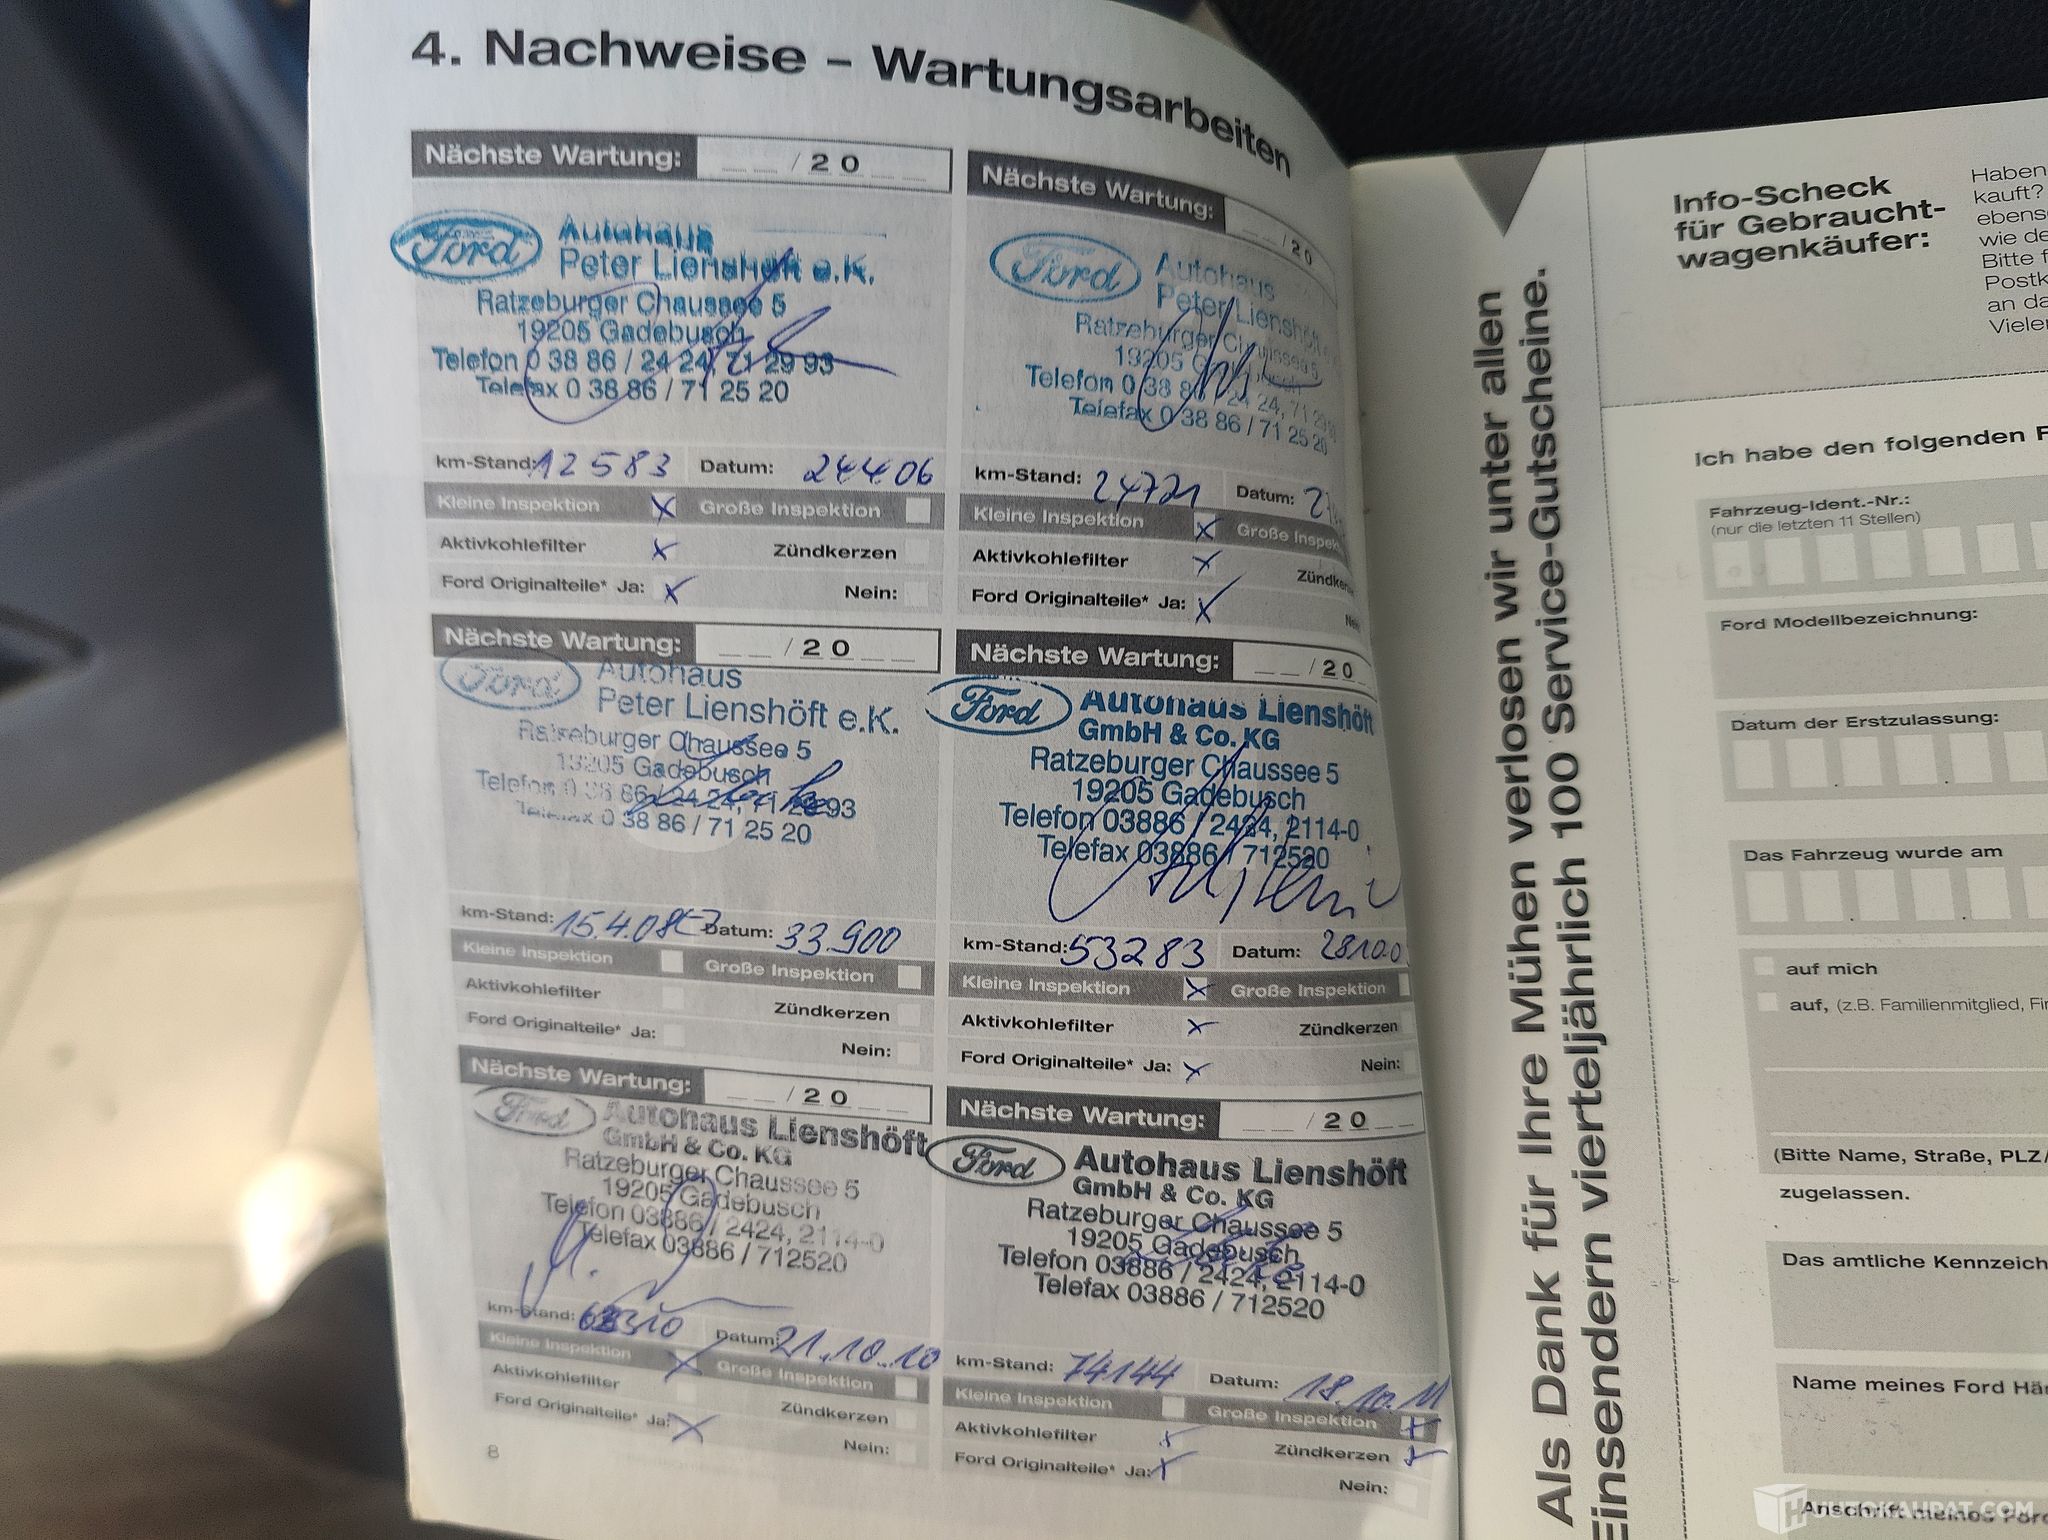 4. Nachweise – Wartungsarbeiten
Nächste Wartung: __/20__
Ford
Autohaus
Peter Lienshöft e.K.
Ratzeburger Chaussee 5
19205 Gadebusch
Telefon 0 38 86 / 24 24, 71 29 93
Telefax 0 38 86 / 71 25 20
km-Stand: 12583 Datum: 24406
Kleine Inspektion x Große Inspektion
Aktivkohlefilter x Zündkerzen
Ford Originalteile* Ja: x Nein:
Nächste Wartung: __/20
Ford
Autohaus
Peter Lienshöft
Ratzeburger Chaussee 5
19205 Gadebusch
Telefon 0 38 86 / 24 24, 71 29
Telefax 0 38 86 / 71 25 20
km-Stand: 24721 Datum:
Kleine Inspektion x Große Inspek
Aktivkohlefilter x Zündke
Ford Originalteile* Ja: x
Nächste Wartung: __/20__
Ford
Autohaus
Peter Lienshöft e.K.
Ratzeburger Chaussee 5
19205 Gadebusch
Telefon 0 38 86 / 24 24, 71 29 93
Telefax 0 38 86 / 71 25 20
km-Stand: 15.4.08 Datum: 33.900
Kleine Inspektion Große Inspektion
Aktivkohlefilter Zündkerzen
Ford Originalteile* Ja: Nein:
Nächste Wartung: __/20_
Ford
Autohaus Lienshöft
GmbH & Co. KG
Ratzeburger Chaussee 5
19205 Gadebusch
Telefon 03886 / 2424, 2114-0
Telefax 03886 / 712520
km-Stand: 53283 Datum: 28100
Kleine Inspektion x Große Inspektion
Aktivkohlefilter x Zündkerzen
Ford Originalteile* Ja: x Nein:
Nächste Wartung: __/20__
Ford
Autohaus Lienshöft
GmbH & Co. KG
Ratzeburger Chaussee 5
19205 Gadebusch
Telefon 03886 / 2424, 2114-0
Telefax 03886 / 712520
km-Stand: Datum: 21.10.10
Kleine Inspektion x Große Inspektion
Aktivkohlefilter Zündkerzen
Ford Originalteile* Ja: x Nein:
Nächste Wartung: __/20__
Ford
Autohaus Lienshöft
GmbH & Co. KG
Ratzeburger Chaussee 5
19205 Gadebusch
Telefon 03886 / 2424, 2114-0
Telefax 03886 / 712520
km-Stand: 74144 Datum: 18.10.11
Kleine Inspektion Große Inspektion x
Aktivkohlefilter x Zündkerzen x
Ford Originalteile* Ja: x Nein:
8
Als Dank für Ihre Mühen verlosen wir unter allen
Einsendern vierteljährlich 100 Service-Gutscheine.
Info-Scheck
für Gebraucht-
wagenkäufer:
Haben
kauft?
ebens
wie de
Bitte f
Postk
an da
Vieler
Ich habe den folgenden F
Fahrzeug-Ident.-Nr.:
(nur die letzten 11 Stellen)
Ford Modellbezeichnung:
Datum der Erstzulassung:
Das Fahrzeug wurde am
auf mich
auf, (z.B. Familienmitglied, Fir
(Bitte Name, Straße, PLZ/
zugelassen.
Das amtliche Kennzeich
Name meines Ford Hä
Anschrift meines Ford
AUTOKAUPAT.COM